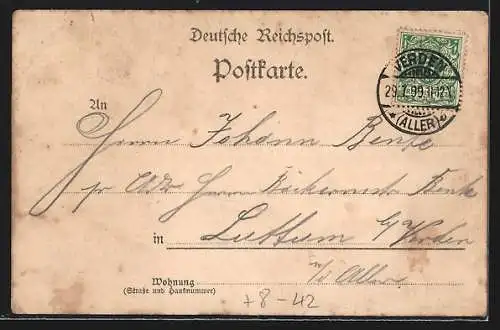 Deutsche Reichspost.
Postkarte.
VERDEN
29.7.99.11-12V.
* (ALLER) *
An
Herrn Johann
pr. Adr. Herrn Bäckermstr.
in Luttum b/Verden
a/d Aller
Wohnung
(Straße und Hausnummer)
+8-42